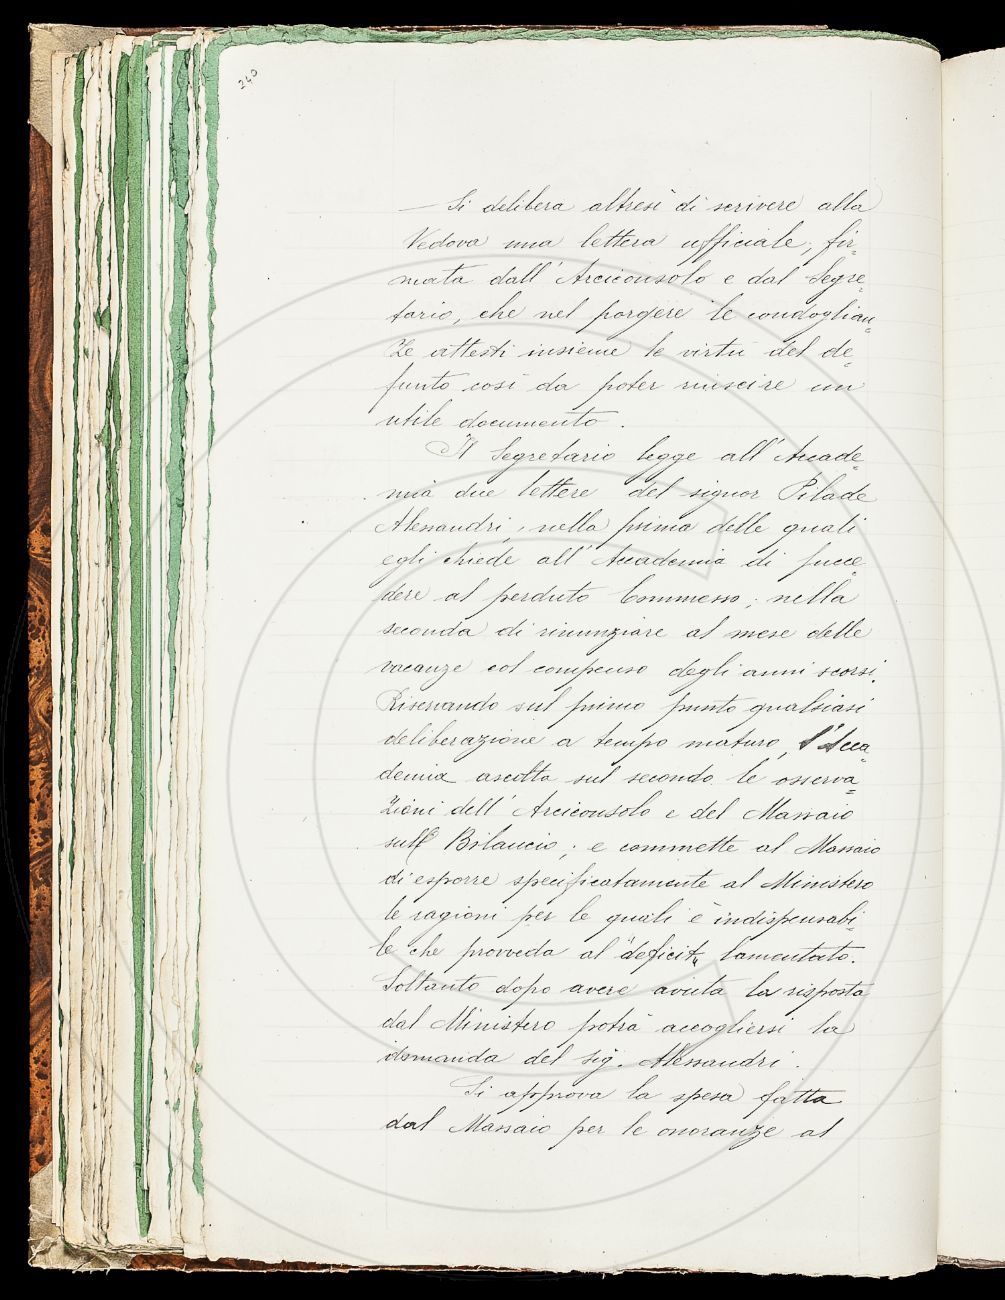 240
— Si delibera altresì di scrivere alla
Vedova una lettera ufficiale, fir=
mata dall'Arciconsolo e dal Segre=
tario, che nel porgere le condoglian=
ze attesti insieme le virtù del de=
funto così da poter riuscire un
utile documento.
Il Segretario legge all'Accade=
mia due lettere del signor Pilade
Alessandri, nella prima delle quali
egli chiede all'Accademia di succe=
dere al perduto Commesso; nella
seconda di rinunziare al mese delle
vacanze col compenso degli anni scorsi.
Riservando sul primo punto qualsiasi
deliberazione a tempo maturo, l'Acca=
demia ascolta sul secondo le osserva=
zioni dell'Arciconsolo e del Massaio
sul Bilancio; e commette al Massaio
di esporre specificatamente al Ministero
le ragioni per le quali è indispensabi=
le che provveda al "deficit" lamentato.
Soltanto dopo avere avuta la risposta
dal Ministero potrà accogliersi la
domanda del sig. Alessandri.
Si approva la spesa fatta
dal Massaio per le onoranze al